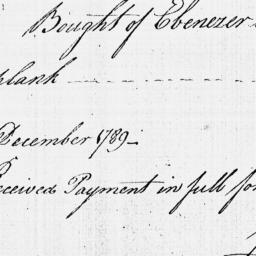 Bought of Ebenezer
plank
December 1789
Received Payment in full for